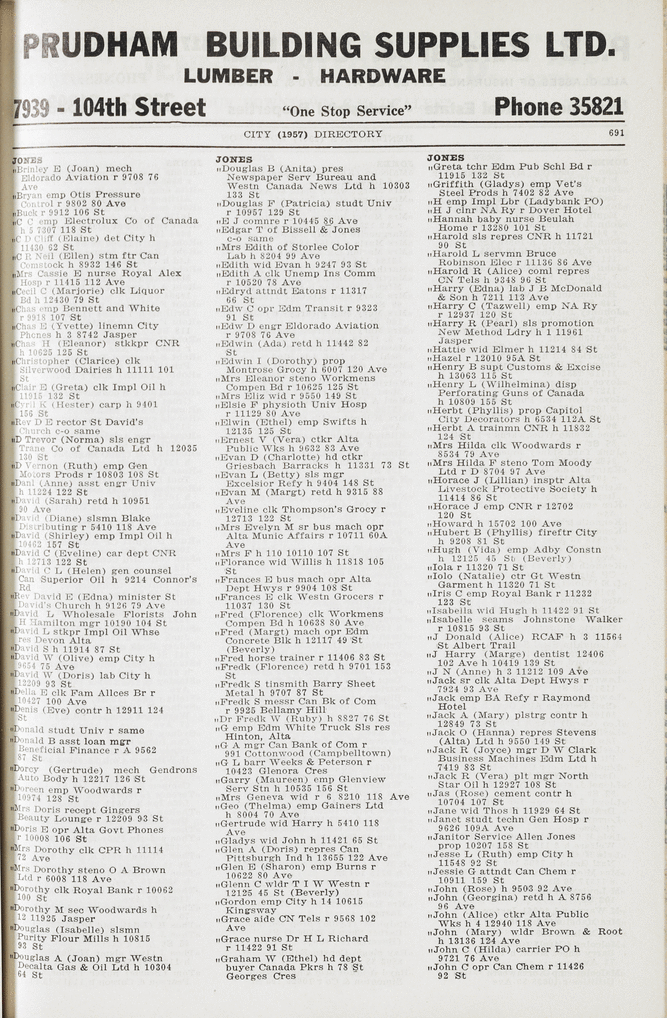 PRUDHAM BUILDING SUPPLIES LTD.
LUMBER - HARDWARE
7939 - 104th Street "One Stop Service" Phone 35821
CITY (1957) DIRECTORY 691
JONES
"Brinley E (Joan) mech
Eldorado Aviation r 9708 76
Ave
"Bryan emp Otis Pressure
Control r 9802 80 Ave
"Buck r 9912 106 St
"C C emp Electrolux Co of Canada
h 5 7307 118 St
"C D Cliff (Elaine) det City h
11430 62 St
"C E Neil (Ellen) stm ftr Can
Comstock h 8932 146 St
"Mrs Cassie E nurse Royal Alex
Hosp r 11415 112 Ave
"Cecil C (Marjorie) clk Liquor
Bd h 12430 79 St
"Chas emp Bennett and White
r 9918 107 St
"Chas E (Yvette) linemn City
Phones h 3 8742 Jasper
"Chas H (Eleanor) stkkpr CNR
h 10625 125 St
"Christopher (Clarice) clk
Silverwood Dairies h 11111 101
St
"Clair E (Greta) clk Impl Oil h
11915 132 St
"Cyril K (Hester) carp h 9401
156 St
"Rev D E rector St David's
Church c-o same
"D Trevor (Norma) sls engr
Trane Co of Canada Ltd h 12035
130 St
"D Vernon (Ruth) emp Gen
Motors Prods r 10803 108 St
"Danl (Anne) asst engr Univ
h 11224 122 St
"David (Sarah) retd h 10951
90 Ave
"David (Diane) slsmn Blake
Distributing r 5410 118 Ave
"David (Shirley) emp Impl Oil h
10462 157 St
"David C (Eveline) car dept CNR
h 12713 122 St
"David C L (Helen) gen counsel
Can Superior Oil h 9214 Connor's
Rd
"Rev David E (Edna) minister St
David's Church h 9126 79 Ave
"David L Wholesale Florists John
H Hamilton mgr 10190 104 St
"David L stkpr Impl Oil Whse
res Devon Alta
"David S h 11914 87 St
"David W (Olive) emp City h
9654 75 Ave
"David W (Doris) lab City h
12209 93 St
"Della E clk Fam Allces Br r
10427 100 Ave
"Denis (Eve) contr h 12911 124
St
"Donald studt Univ r same
"Donald B asst loan mgr
Beneficial Finance r A 9562
87 St
"Dorcy (Gertrude) mech Gendrons
Auto Body h 12217 126 St
"Doreen emp Woodwards r
10974 128 St
"Mrs Doris recept Gingers
Beauty Lounge r 12209 93 St
"Doris E opr Alta Govt Phones
r 10008 106 St
"Mrs Dorothy clk CPR h 11114
72 Ave
"Mrs Dorothy steno O A Brown
Ltd r 6008 118 Ave
"Dorothy clk Royal Bank r 10062
100 St
"Dorothy M sec Woodwards h
12 11925 Jasper
"Douglas (Isabelle) slsmn
Purity Flour Mills h 10815
93 St
"Douglas A (Joan) mgr Westn
Decalta Gas & Oil Ltd h 10304
64 St
JONES
"Douglas B (Anita) pres
Newspaper Serv Bureau and
Westn Canada News Ltd h 10303
133 St
"Douglas F (Patricia) studt Univ
r 10957 129 St
"E J comnre r 10445 86 Ave
"Edgar T of Bissell & Jones
c-o same
"Mrs Edith of Storlee Color
Lab h 8204 99 Ave
"Edith wid Evan h 9247 93 St
"Edith A clk Unemp Ins Comm
r 10520 78 Ave
"Edryd attndt Eatons r 11317
66 St
"Edw C opr Edm Transit r 9323
91 St
"Edw D engr Eldorado Aviation
r 9708 76 Ave
"Edwin (Ada) retd h 11442 82
St
"Edwin I (Dorothy) prop
Montrose Grocy h 6007 120 Ave
"Mrs Eleanor steno Workmens
Compen Bd r 10625 125 St
"Mrs Eliz wid r 9550 149 St
"Elsie F physioth Univ Hosp
r 11129 80 Ave
"Elwin (Ethel) emp Swifts h
12135 125 St
"Ernest V (Vera) ctkr Alta
Public Wks h 9632 83 Ave
"Evan D (Charlotte) hd ctkr
Griesbach Barracks h 11331 73 St
"Evan L (Betty) sls mgr
Excelsior Refy h 9404 148 St
"Evan M (Margt) retd h 9315 88
Ave
"Eveline clk Thompson's Grocy r
12713 122 St
"Mrs Evelyn M sr bus mach opr
Alta Munic Affairs r 10711 60A
Ave
"Mrs F h 110 10110 107 St
"Florance wid Willis h 11818 105
St
"Frances E bus mach opr Alta
Dept Hwys r 9904 108 St
"Frances E clk Westn Grocers r
11037 130 St
"Fred (Florence) clk Workmens
Compen Bd h 10638 80 Ave
"Fred (Margt) mach opr Edm
Concrete Blk h 12117 49 St
(Beverly)
"Fred horse trainer r 11406 83 St
"Fredk (Florence) retd h 9701 153
St
"Fredk S tinsmith Barry Sheet
Metal h 9707 87 St
"Fredk S messr Can Bk of Com
r 9925 Bellamy Hill
"Dr Fredk W (Ruby) h 8827 76 St
"G emp Edm White Truck Sls res
Hinton, Alta
"G A mgr Can Bank of Com r
991 Cottonwood (Campbelltown)
"G L barr Weeks & Peterson r
10423 Glenora Cres
"Garry (Maureen) emp Glenview
Serv Stn h 10535 156 St
"Mrs Geneva wid r 6 8210 118 Ave
"Geo (Thelma) emp Gainers Ltd
h 8004 70 Ave
"Gertrude wid Harry h 5410 118
Ave
"Gladys wid John h 11421 65 St
"Glen A (Doris) repres Can
Pittsburgh Ind h 13655 122 Ave
"Glen E (Sharon) emp Burns r
10622 80 Ave
"Glenn C wldr T I W Westn r
12125 45 St (Beverly)
"Gordon emp City h 14 10615
Kingsway
"Grace aide CN Tels r 9568 102
Ave
"Grace nurse Dr H L Richard
r 11422 91 St
"Graham W (Ethel) hd dept
buyer Canada Pkrs h 78 St
Georges Cres
JONES
"Greta tchr Edm Pub Schl Bd r
11915 132 St
"Griffith (Gladys) emp Vet's
Steel Prods h 7402 82 Ave
"H emp Impl Lbr (Ladybank PO)
"H J clnr NA Ry r Dover Hotel
"Hannah baby nurse Beulah
Home r 13280 101 St
"Harold sls repres CNR h 11721
90 St
"Harold L servmn Bruce
Robinson Elec r 11136 86 Ave
"Harold R (Alice) coml repres
CN Tels h 9348 96 St
"Harry (Edna) lab J B McDonald
& Son h 7211 113 Ave
"Harry C (Tazwell) emp NA Ry
r 12937 120 St
"Harry R (Pearl) sls promotion
New Method Ldry h 1 11961
Jasper
"Hattie wid Elmer h 11214 84 St
"Hazel r 12010 95A St
"Henry B supt Customs & Excise
h 13063 115 St
"Henry L (Wilhelmina) disp
Perforating Guns of Canada
h 10809 155 St
"Herbt (Phyllis) prop Capitol
City Decorators h 6534 112A St
"Herbt A trainmn CNR h 11832
124 St
"Mrs Hilda clk Woodwards r
8534 79 Ave
"Mrs Hilda F steno Tom Moody
Ltd r D 8704 97 Ave
"Horace J (Lillian) insptr Alta
Livestock Protective Society h
11414 86 St
"Horace J emp CNR r 12702
120 St
"Howard h 15702 100 Ave
"Hubert B (Phyllis) fireftr City
h 9208 81 St
"Hugh (Vida) emp Adby Constn
h 12125 45 St (Beverly)
"Iola r 11320 71 St
"Iolo (Natalie) ctr Gt Westn
Garment h 11320 71 St
"Iris C emp Royal Bank r 11232
123 St
"Isabella wid Hugh h 11422 91 St
"Isabelle seams Johnstone Walker
r 10815 93 St
"J Donald (Alice) RCAF h 3 11564
St Albert Trail
"J Harry (Marge) dentist 12406
102 Ave h 10419 139 St
"J N (Anne) h 3 11212 109 Ave
"Jack sr clk Alta Dept Hwys r
7924 93 Ave
"Jack emp BA Refy r Raymond
Hotel
"Jack A (Mary) plstrg contr h
12849 73 St
"Jack O (Hanna) repres Stevens
(Alta) Ltd h 9550 149 St
"Jack R (Joyce) mgr D W Clark
Business Machines Edm Ltd h
7419 83 St
"Jack R (Vera) plt mgr North
Star Oil h 12927 108 St
"Jas (Rose) cement contr h
10704 107 St
"Jane wid Thos h 11929 64 St
"Janet studt techn Gen Hosp r
9626 109A Ave
"Janitor Service Allen Jones
prop 10207 158 St
"Jesse L (Ruth) emp City h
11548 92 St
"Jessie G attndt Can Chem r
10911 159 St
"John (Rose) h 9503 92 Ave
"John (Georgina) retd h A 8756
96 Ave
"John (Alice) ctkr Alta Public
Wks h 4 12940 118 Ave
"John (Mary) wldr Brown & Root
h 13136 124 Ave
"John C (Hilda) carrier PO h
9721 76 Ave
"John C opr Can Chem r 11426
92 St